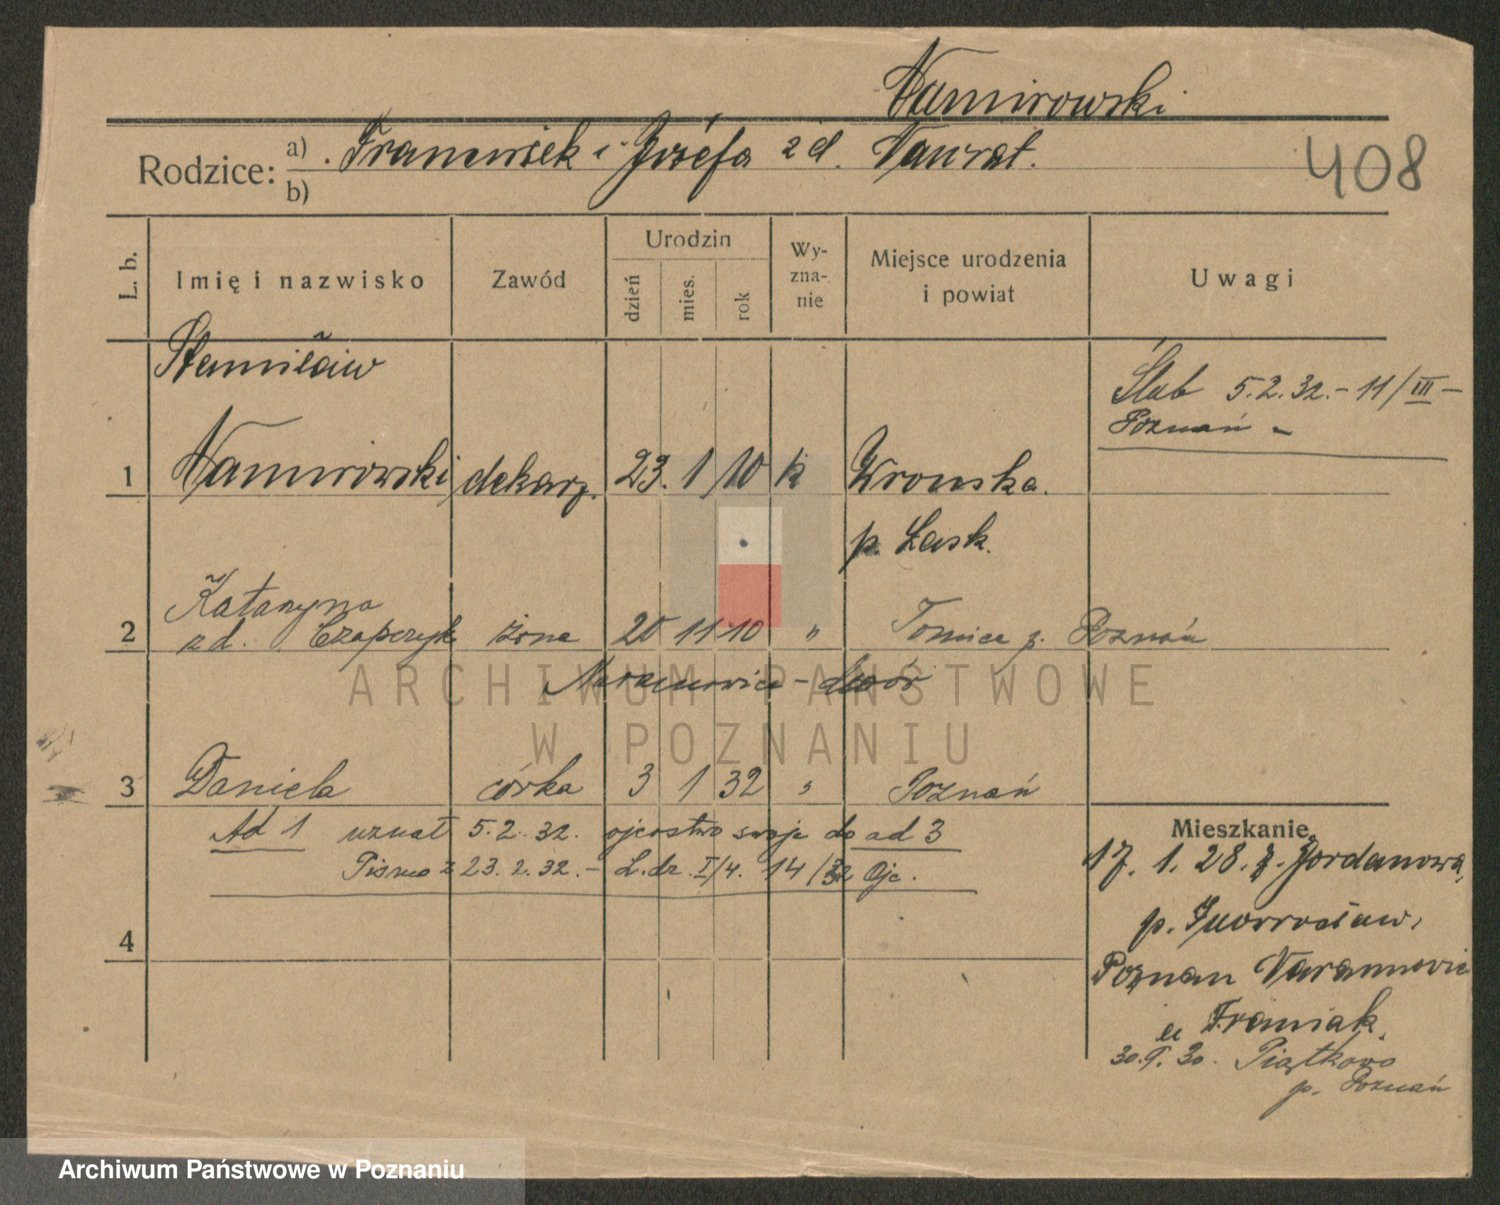 Namirowski
Rodzice: a) Franciszek i Józefa zd. Nawrat.
b)
408
L. b.
Imię i nazwisko
Zawód
Urodzin
dzień
mies.
rok
Wy-
zna-
nie
Miejsce urodzenia
i powiat
Uwagi
Stanisław
Ślub 5.2.32.- 11/III -
Poznań -
1 Namirowski dekarz. 23. 1 10 k Wronska.
p. Łask.
Katarzyna
2 zd. Czapczyk żona 20 11 10 " Tomice p. Poznań
Naramowice - dwór
3 Daniela córka 3 1 32 " Poznań
Ad 1 uznał 5.2.32. ojcostwo swoje do ad 3
Pismo z 23.2.32.- L.dz. I/4. 14/32 Ojc.
4
Mieszkanie.
17. 1. 28. z. Jordanowa,
p. Inowrocław,
Poznan Naramowic
u Franiak.
30.9.30. Piątkowo
p. Poznań
ARCHIWUM PAŃSTWOWE
W POZNANIU
Archiwum Państwowe w Poznaniu